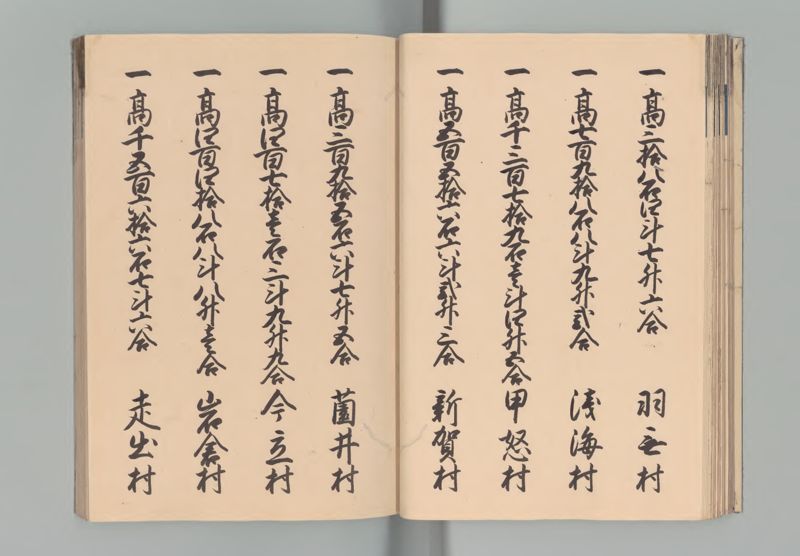 一高三拾八石四斗七升六合 羽无村
一高七百九拾八石八斗九升弐合 浅海村
一高千三百七拾九石壱斗四升五合 甲怒村
一高五百五拾六石六斗弐升三合 新賀村
一高三百九拾五石六斗七升五合 薗井村
一高四百七拾壱石三斗九升九合 今立村
一高四百四拾八石八斗八升壱合 岩倉村
一高千五百六拾六石七斗六合 走出村